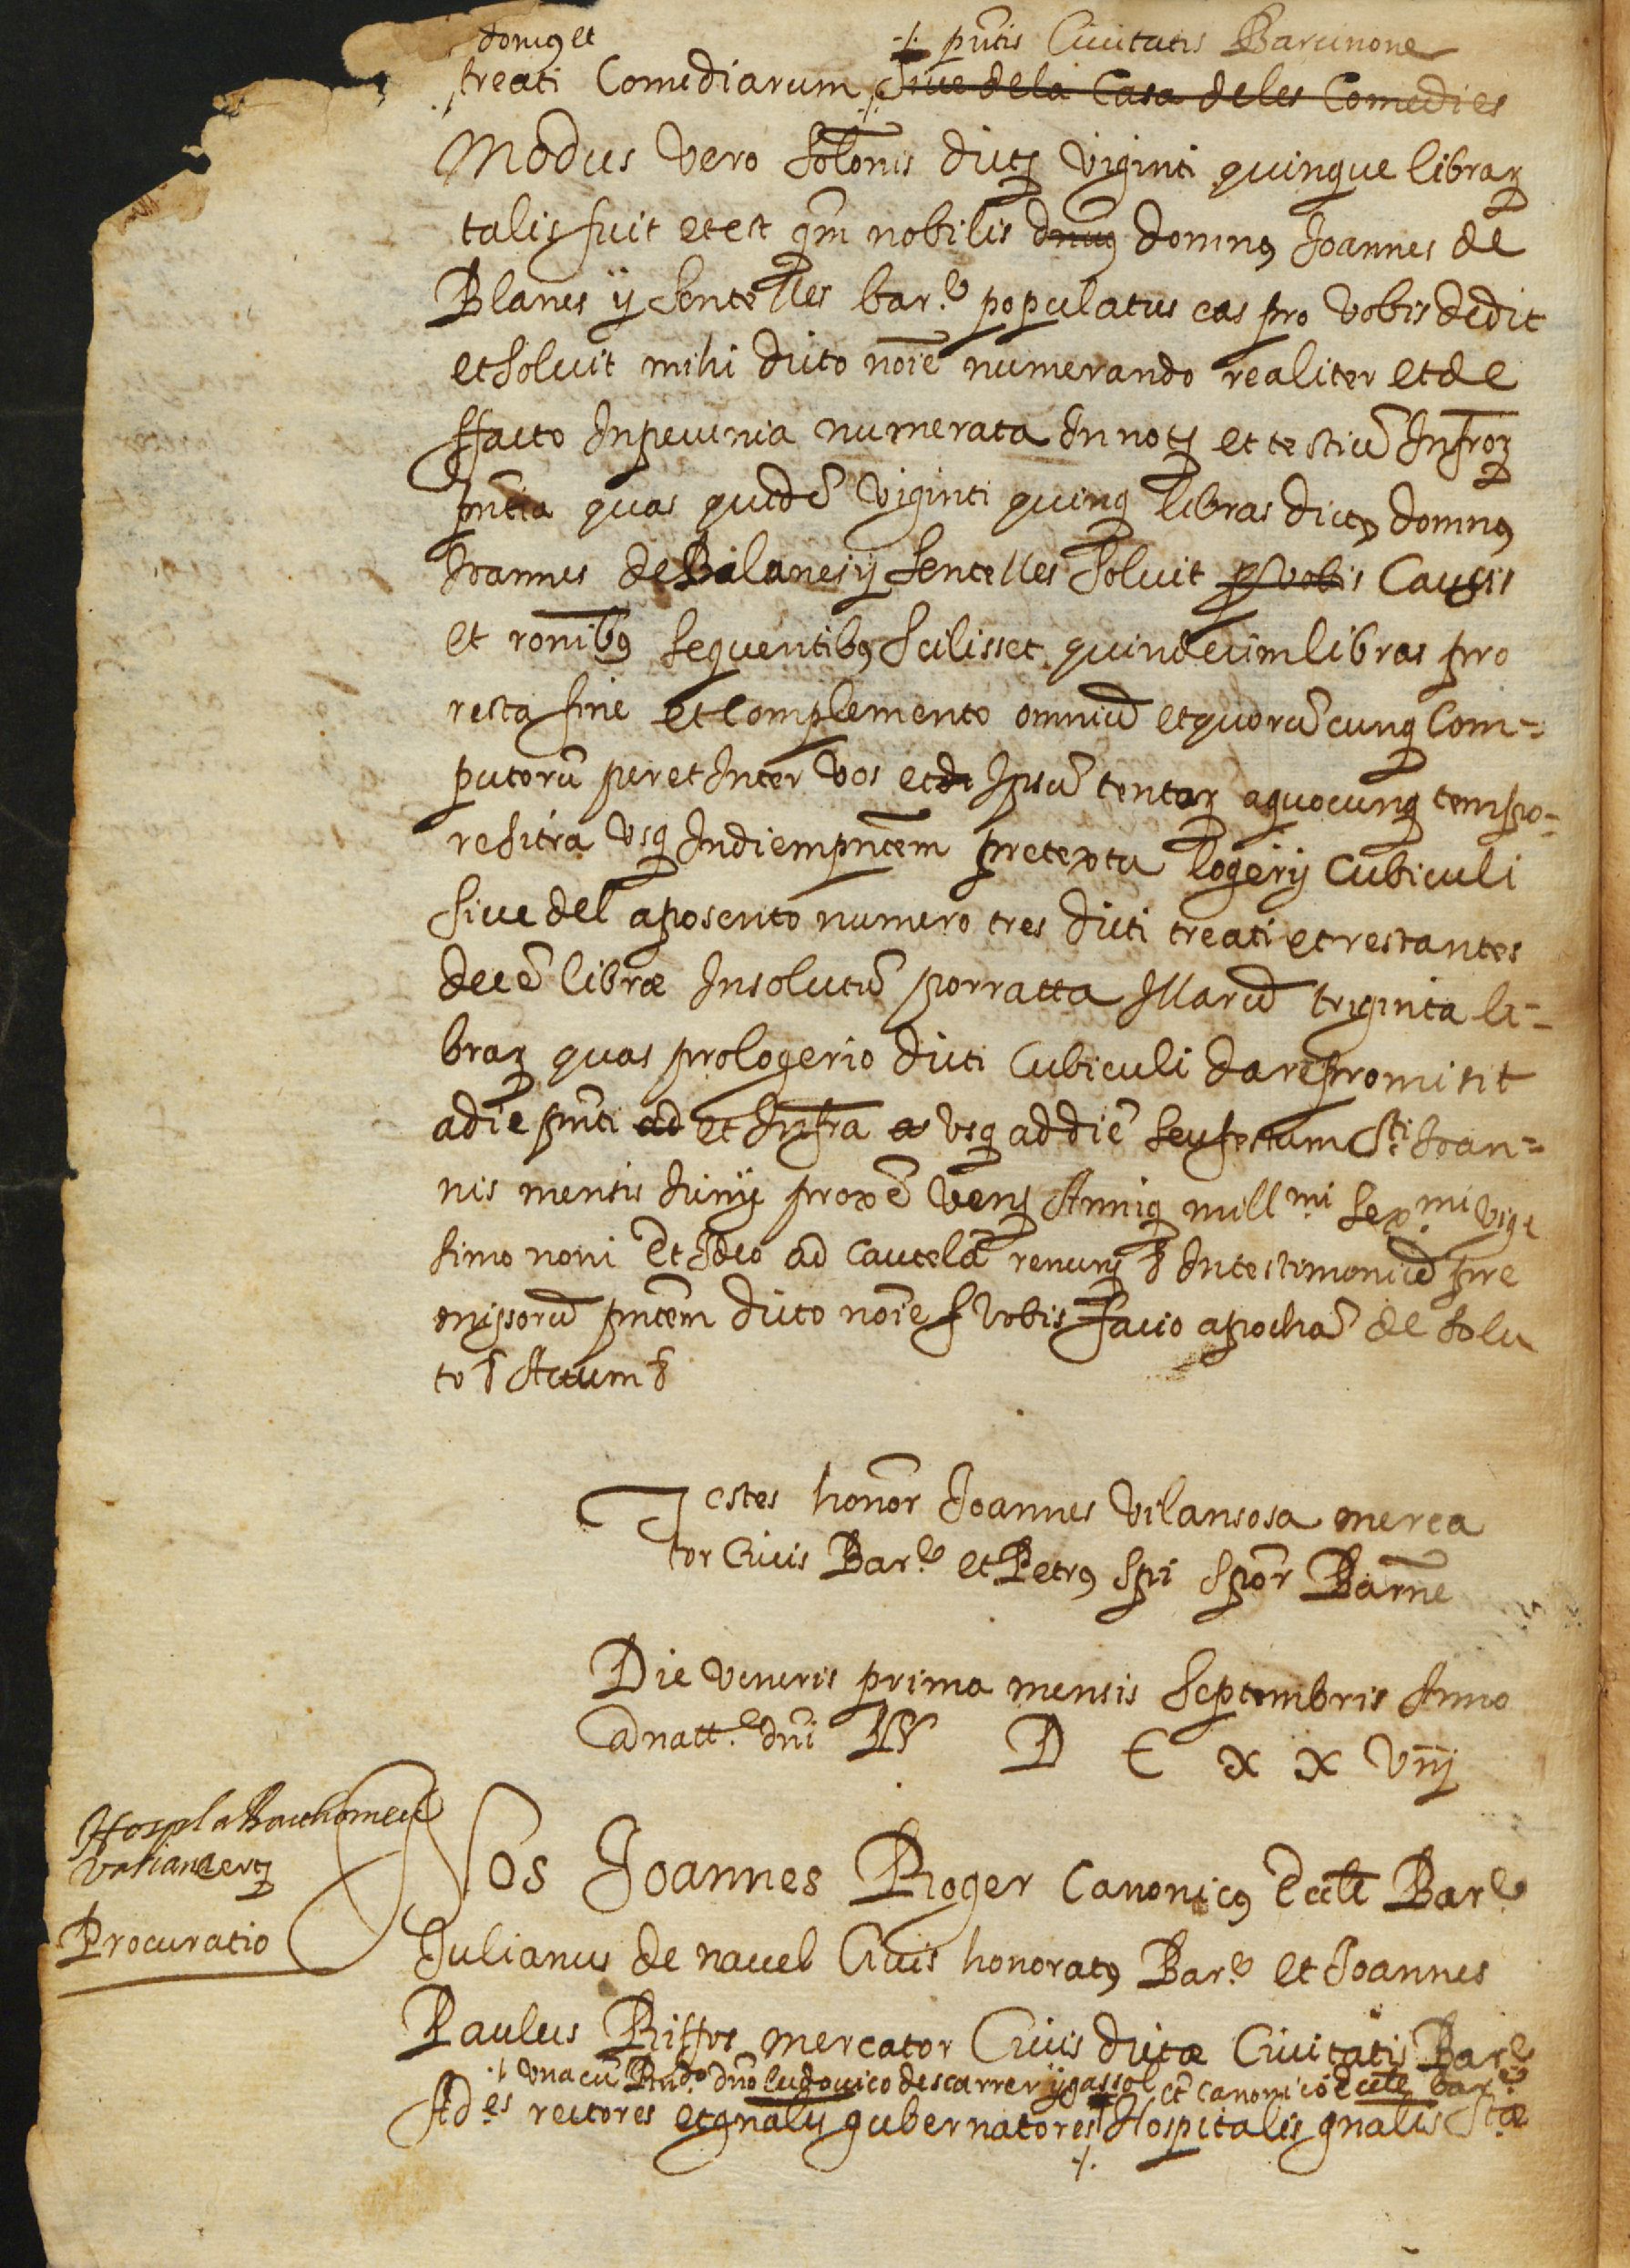 domus et ·/· pntis Ciuitatis Barcinone
treati Comediarum, Siue dela Casa deles Comedies
Modus vero solonis dictz viginti quinque libraz
talis fuit et est qm nobilis dnus domnus Joannes de
Blanes ÿ Sentelles bar.e populatus eas pro vobis dedit
et soluit mihi dicto noie numerando realiter et de
ffacto In pecunia numerata In notz et testiu Infroz
pntia quas quide viginti quinq libras dictus domnus
Joannes de Balanes ÿ Sentelles soluit p vobis Causis
et ronibus sequentibus scilisset quindecim libras pro
resta fine et complemento omniu et quorucunq Com=
putoru per et Inter vos et de Ipsu tentaz a quocunq tempo=
re sitra vsq In diem pntem pretextu logerÿ Cubiculi
siue del aposento numero tres dicti treati et restantes
dece libræ In solutu porratta Illaru triginta li=
braz quas pro logerio dicti Cubiculi dare promisit
a die pnti ad et Infra a vsq ad die seu festum Sti Joan=
nis mensis Junÿ proxe venz Anniq mill.mi sex.mi vige
simo noni Et Ideo ad cautela renunz & In testimoniu pre
missoru pntem dicto noie & vobis facio apocha de solu
to & Actum &
Testes honor Joannes Vilansosa merca
tor Ciuis Bar.e et Petrus Spi Spor Barne
Die veneris prima mensis Septembris Anno
a natt.e dni M D C x x viiij
Hospl
Procuratio
Nos Joannes Roger Canonicus Eccle Bar.e
Julianus de nauel Ciuis honoratus Bar.e et Joannes
Paulus Riffos mercator Ciuis dictæ Ciuitatis Bar.e
·/· vna cu Rndo dno ludouico descarrer ÿ gassol et canonico Eccle bar.e
Ad.es rectores et gnalis gubernatores ·/· Hospitalis gnalis Stæ